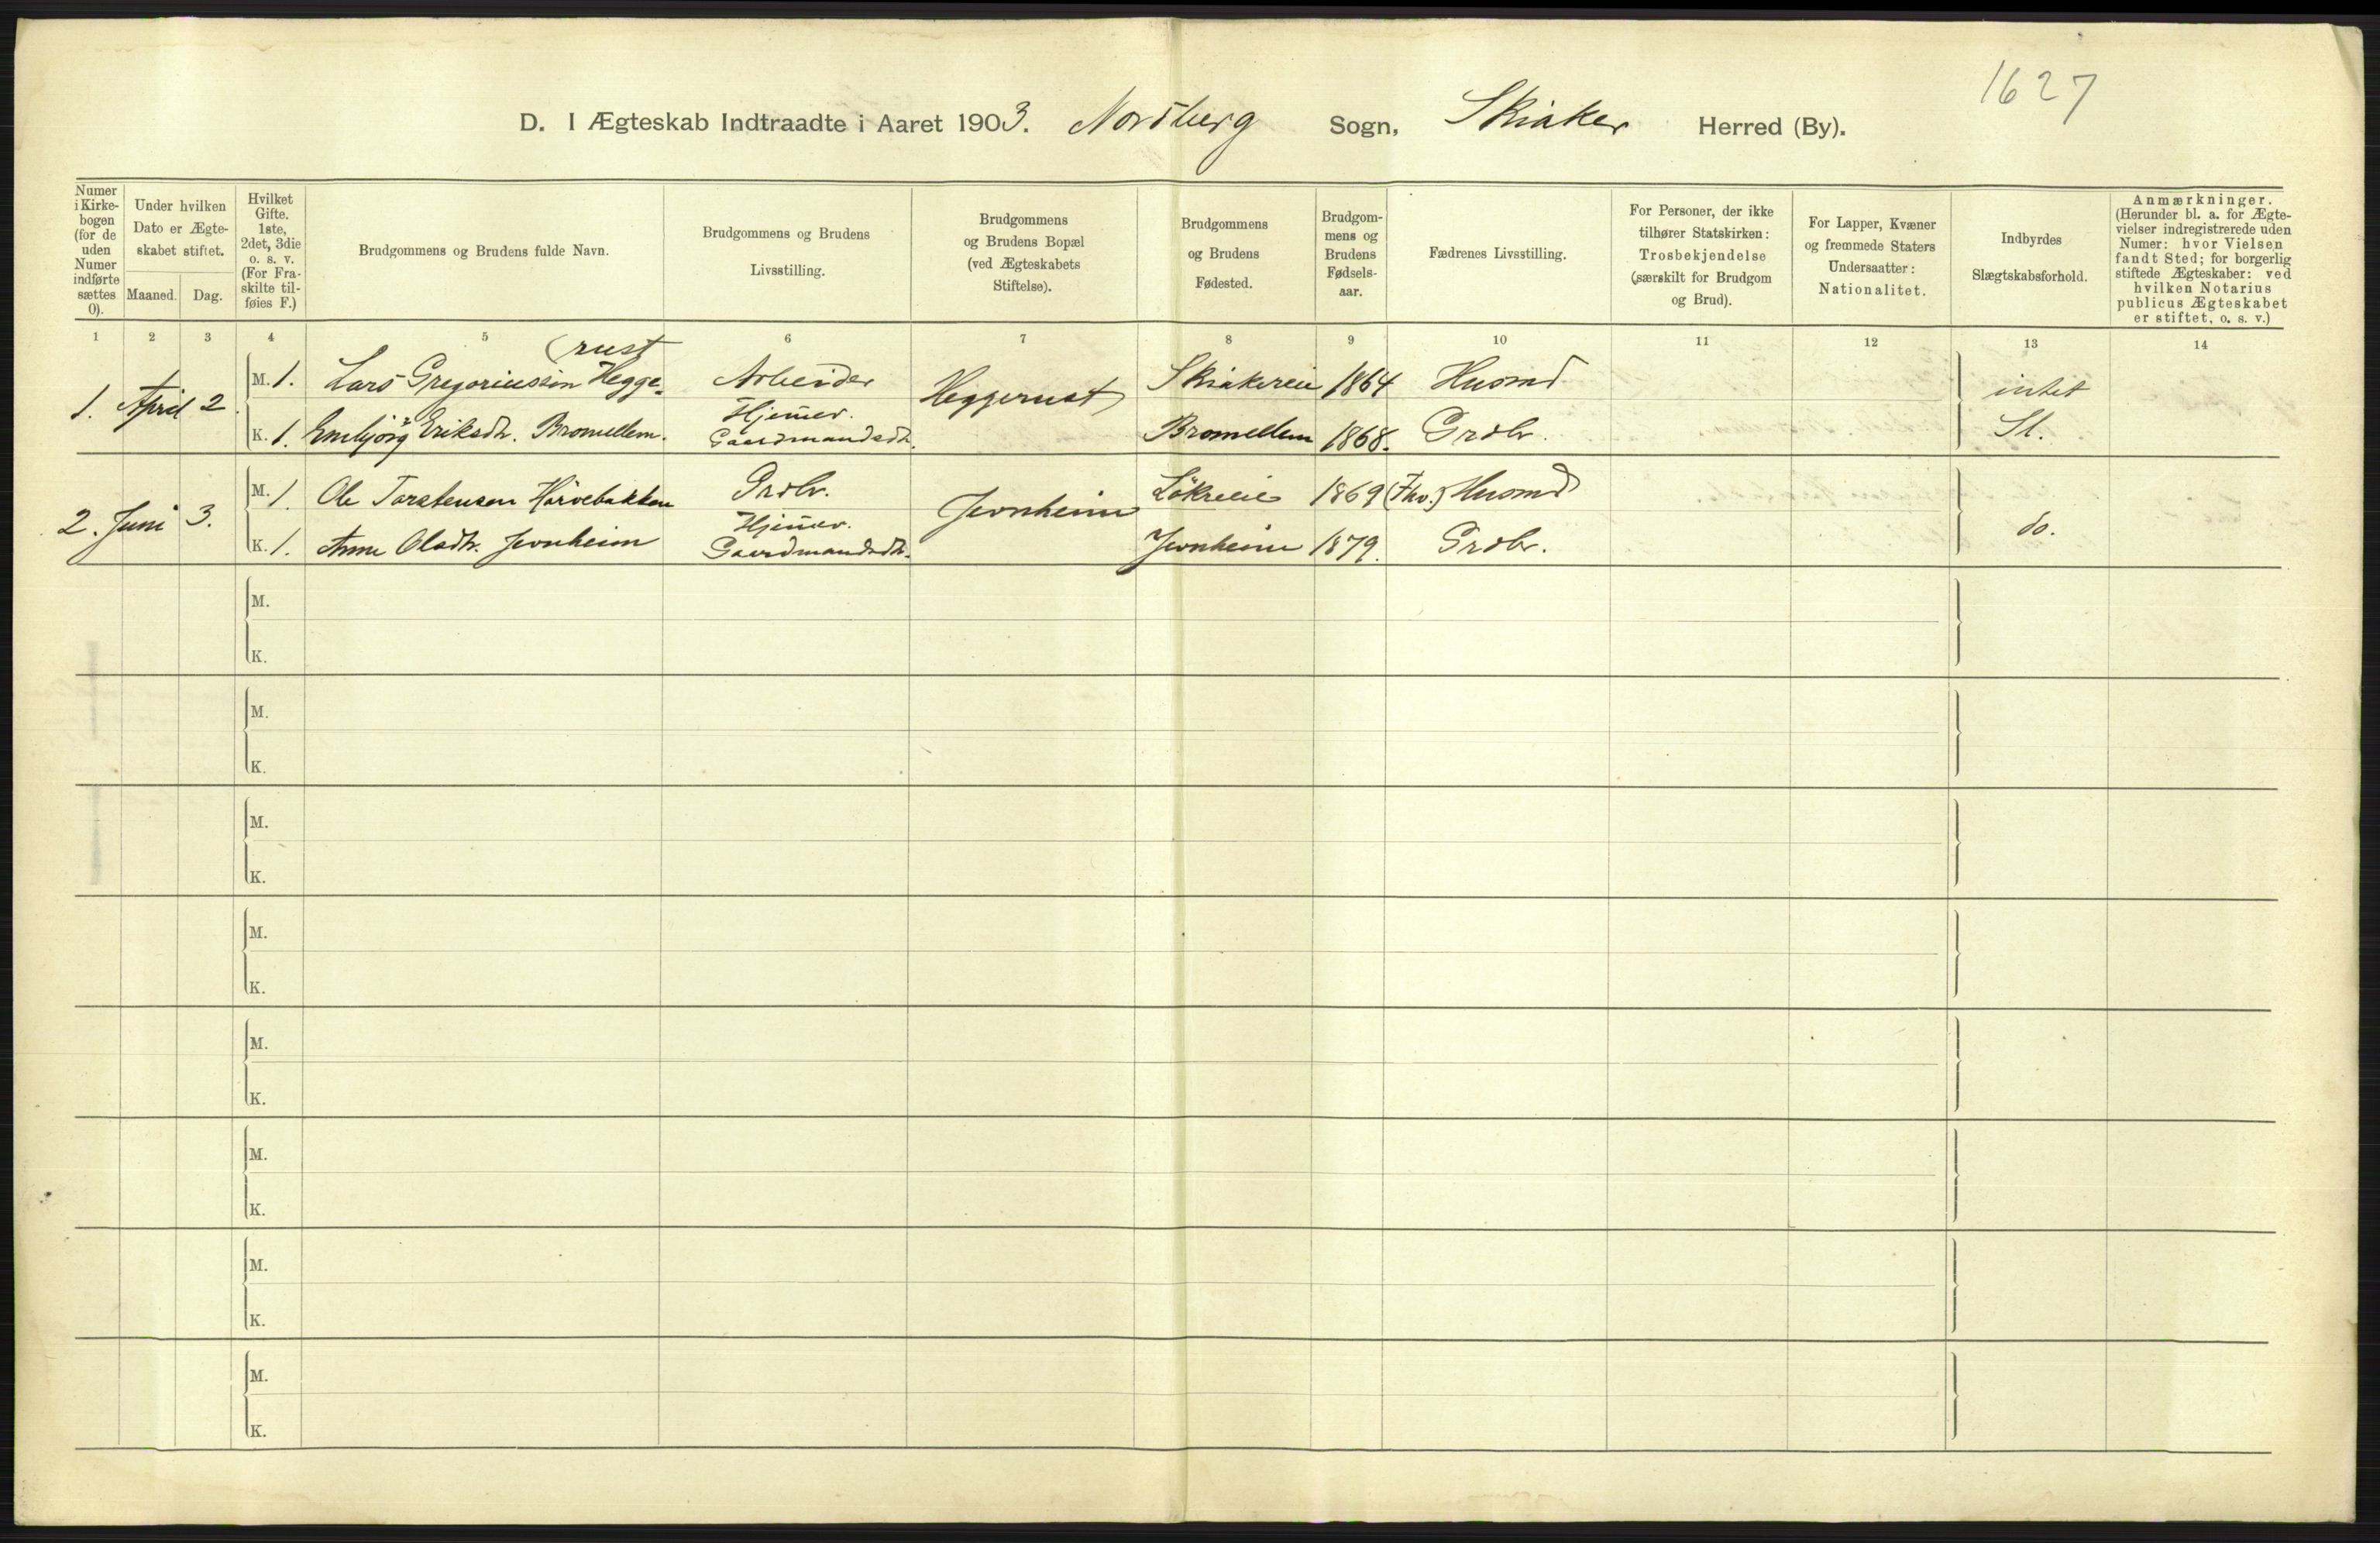 1627
D. I Ægteskab Indtraadte i Aaret 1903. Nordberg Sogn, Skiaker Herred (By).
Numer i Kirkebogen (for de uden Numer indførte sættes 0).
Under hvilken Dato er Ægteskabet stiftet.
Maaned. Dag.
Hvilket Gifte. 1ste, 2det, 3die o. s. v. (For Fraskilte tilføies F.)
Brudgommens og Brudens fulde Navn.
Brudgommens og Brudens Livsstilling.
Brudgommens og Brudens Bopæl (ved Ægteskabets Stiftelse).
Brudgommens og Brudens Fødested.
Brudgommens og Brudens Fødselsaar.
Fædrenes Livsstilling.
For Personer, der ikke tilhører Statskirken: Trosbekjendelse (særskilt for Brudgom og Brud).
For Lapper, Kvæner og fremmede Staters Undersaatter: Nationalitet.
Indbyrdes Slægtskabsforhold.
Anmærkninger. (Herunder bl. a. for Ægtevielser indregistrerede uden Numer: hvor Vielsen fandt Sted; for borgerlig stiftede Ægteskaber: ved hvilken Notarius publicus Ægteskabet er stiftet, o. s. v.)
1 2 3 4 5 6 7 8 9 10 11 12 13 14
(rust
1. April 2. M. 1. Lars Gregoriussen Hegge- Arbeider Heggerust Skiakereie 1864 Husmd intet
K. 1. Embjörg Eriksdtr. Bromellem. Hjemmev. Gaardmandsdtr. Bromellem 1868. Grdbr. Sl.
2. Juni 3. M. 1. Ole Torstensen Harvebakken Grdbr. Jernheim Lökreeie 1869 (Fhv.) Husmd do.
K. 1. Anne Olsdtr. Jernheim Hjemmev. Gaardmandsdtr. Jernheim 1879. Grdbr.
M.
K.
M.
K.
M.
K.
M.
K.
M.
K.
M.
K.
M.
K.
M.
K.